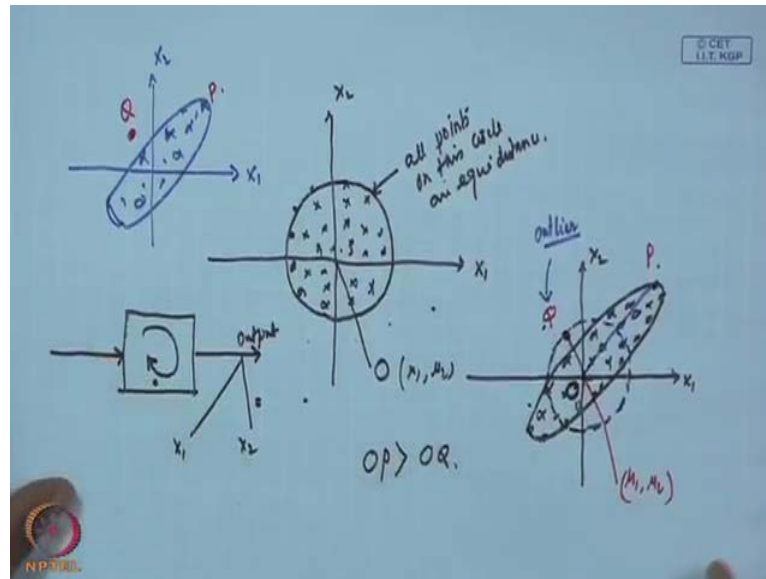 © CET
I.I.T. KGP
X₂
Q
P.
X₁
X₂
all points
on this circle
are equidistance.
X₁
O (μ₁, μ₂)
outlier
X₂
P.
Q
O
X₁
(μ₁, μ₂)
Output
X₁
X₂
OP > OQ.
NPTEL